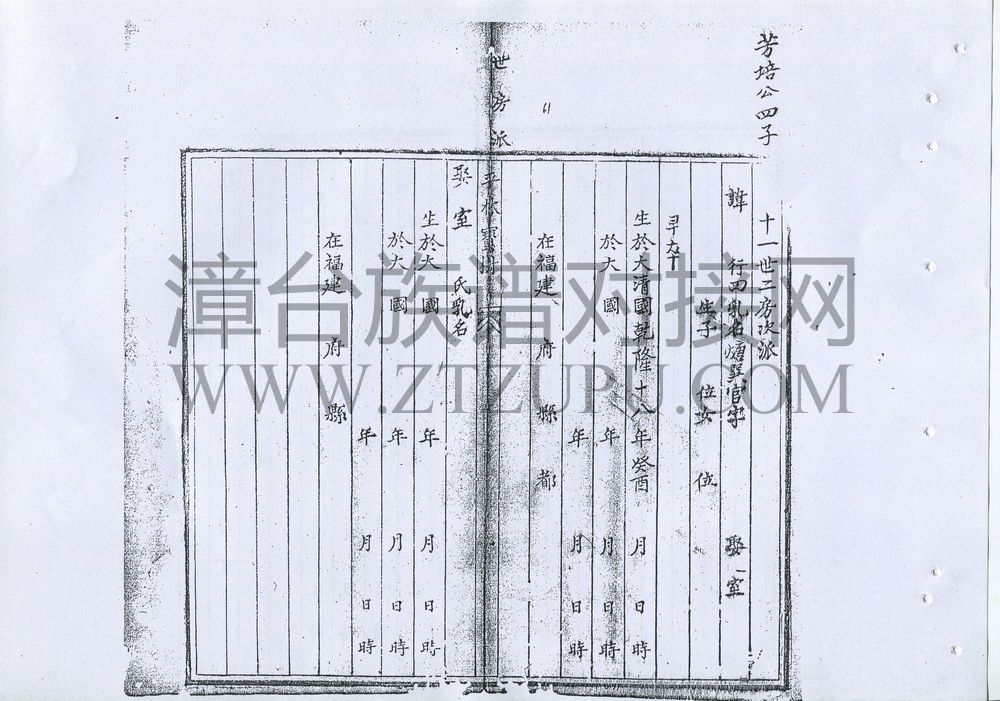 芳培公四子
十一世二房次派
諱 行四乳名 官字 娶 室
生子 位女 位
早
生於大清國乾隆十八年癸酉 月 日 時
於大 國 年 月 日 時
年 月 日 時
在福建 府 縣 都
61
世 房 派
娶 室 氏乳名
生於大 國 年 月 日 時
於大 國 年 月 日 時
年 月 日 時
在福建 府 縣
漳台族谱对接网
WWW.ZTZUPU.COM